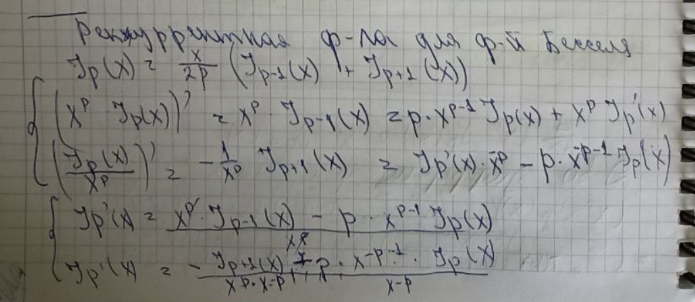 Реккуррентная ф-ла для ф-й Бесселя
Jp(x) = x/2p (Jp-1(x) + Jp+1(x))
(x^p · Jp(x))' = x^p · Jp-1(x) = p · x^p-1 Jp(x) + x^p Jp'(x)
(Jp(x)/x^p)' = - 1/x^p Jp+1(x) = Jp'(x) · x^-p - p · x^-p-1 Jp(x)
Jp'(x) = x^p · Jp-1(x) - p · x^p-1 Jp(x) / x^p
Jp'(x) = - Jp+1(x)/x^p · x^-p + p · x^-p-1 · Jp(x) / x^-p